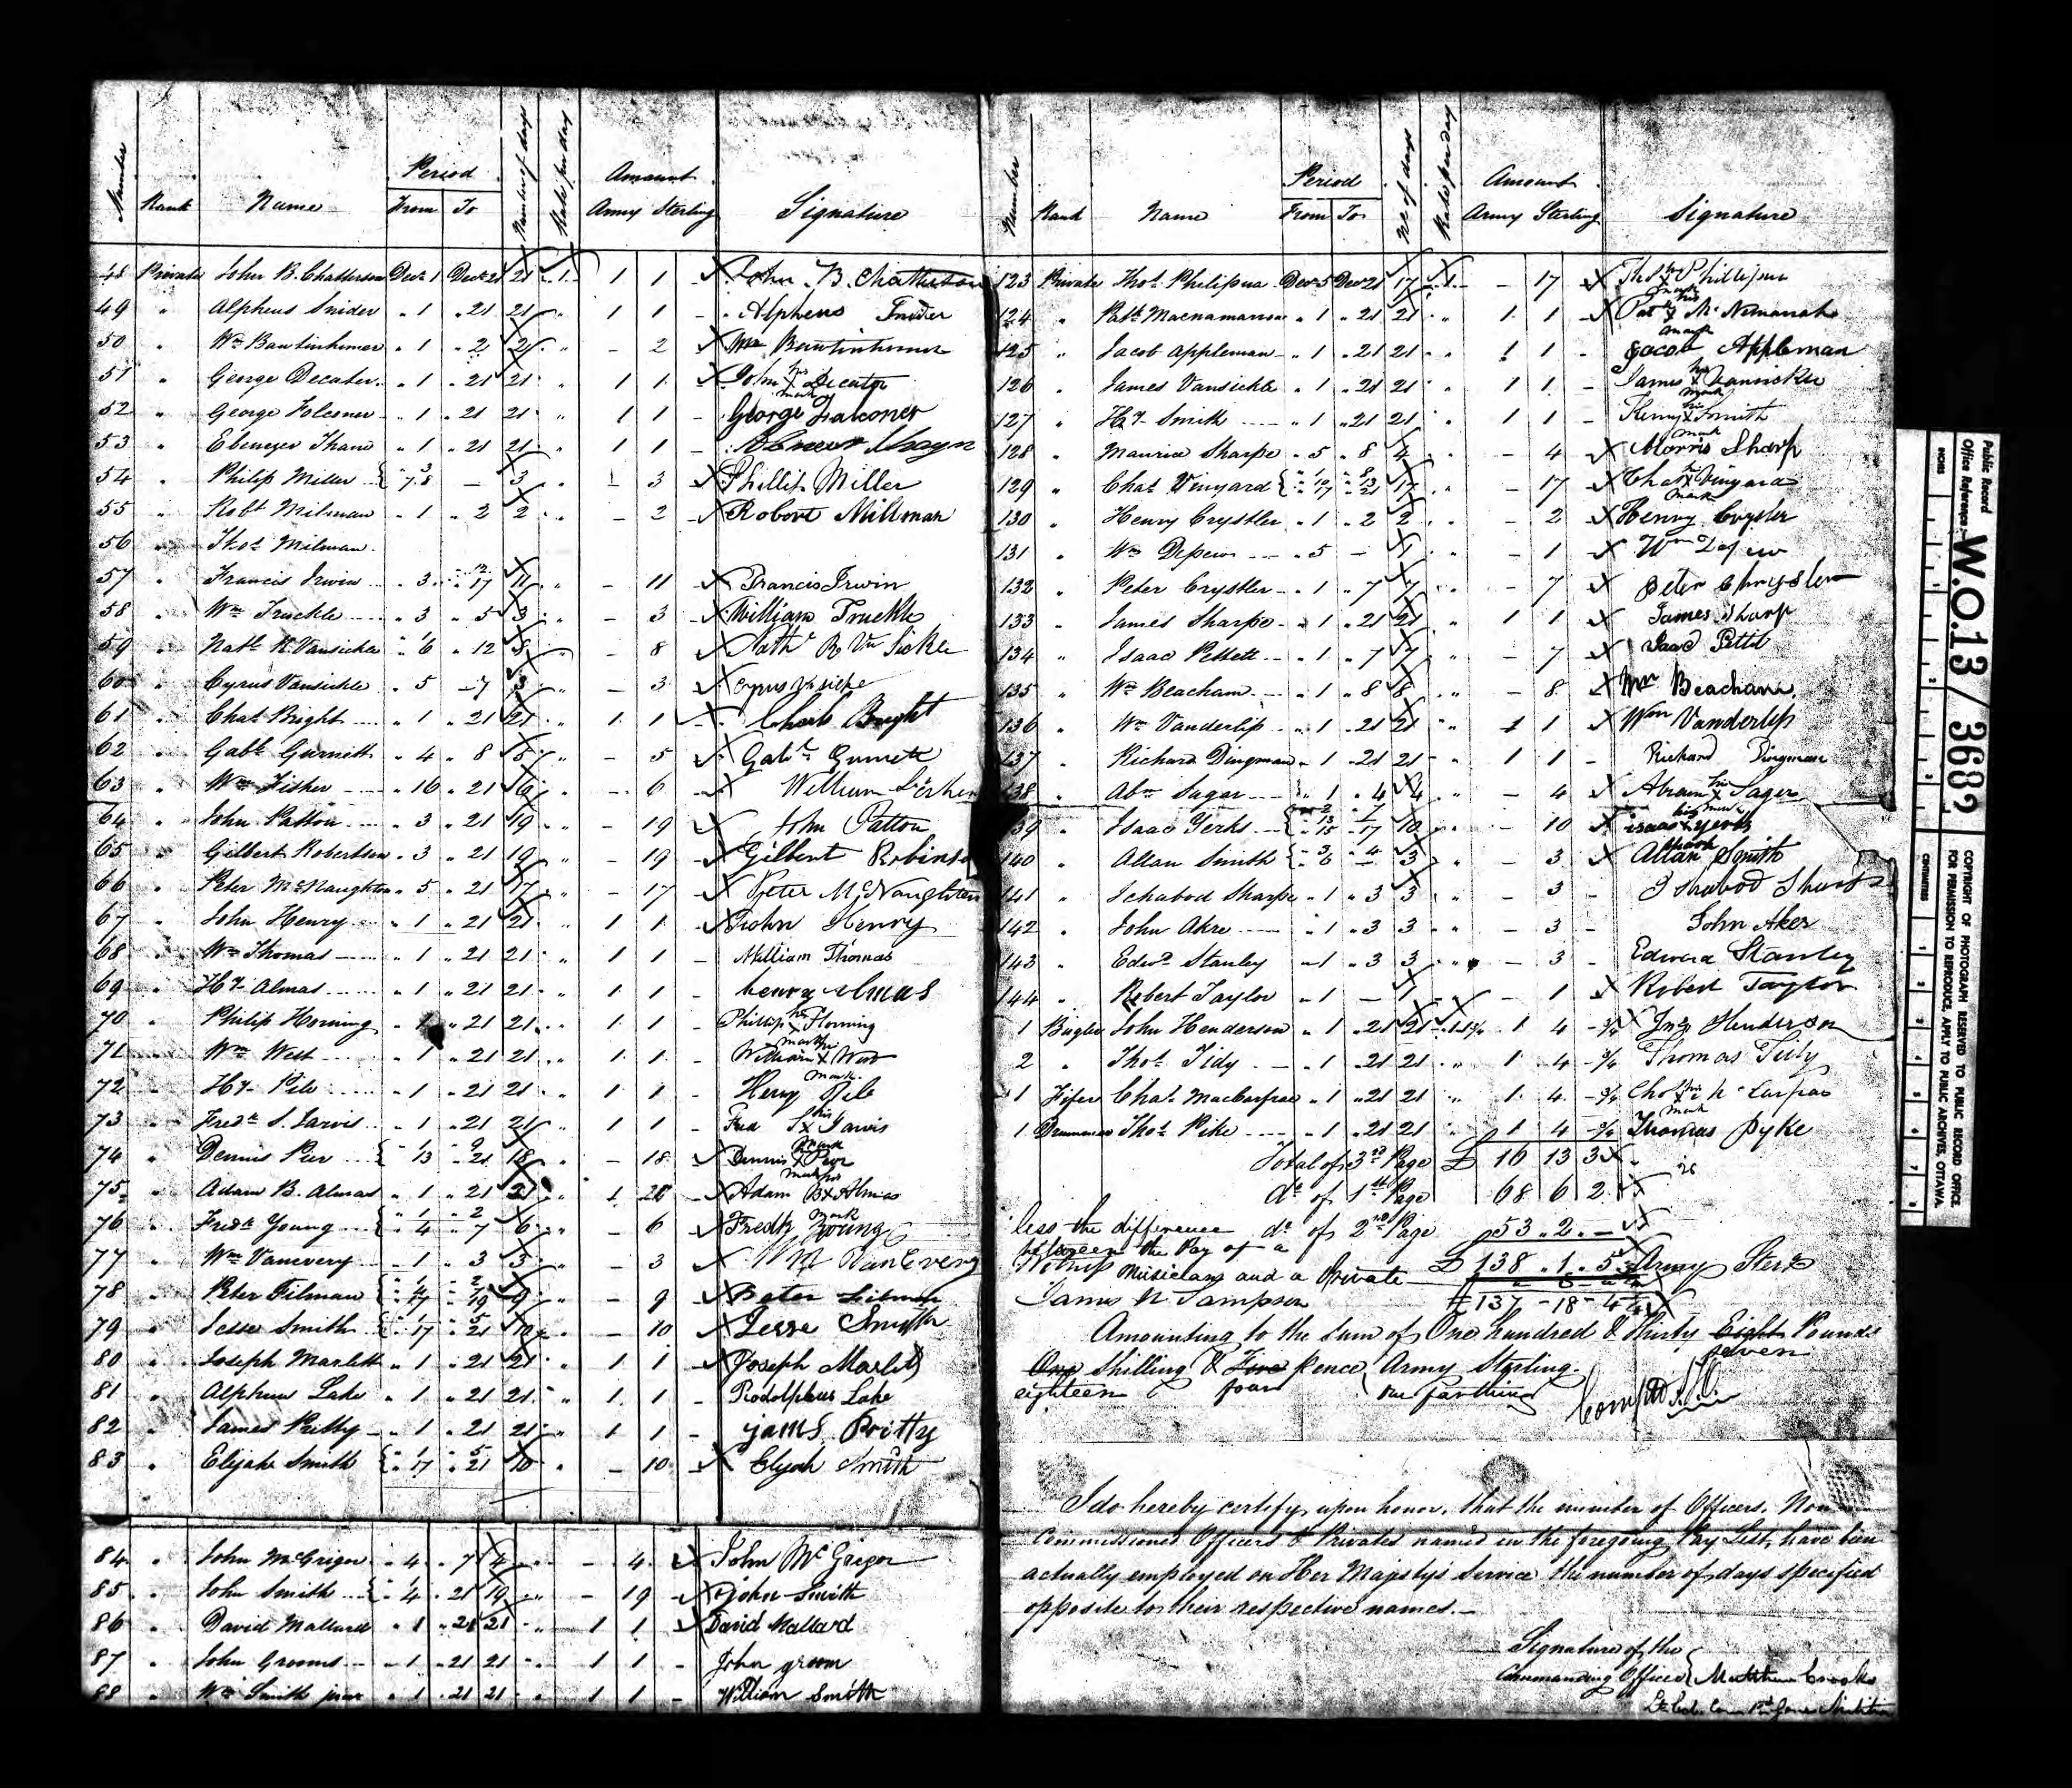 Number Rank Name Period From To Number of days Rate per day Amount Army Sterling Signature
48 Private John B. Chatterson Decr 1 Decr 21 21 1 1 1 - John B. Chatterson
49 " Alpheus Snider " 1 " 21 21 " 1 1 - Alpheus Snider
50 " Wm Bawtinhimer " 1 " 2 2 " - 2 - Wm Bawtinhimer
51 " George Decater " 1 " 21 21 " 1 1 - John his X mark Decator
52 " George Folconer " 1 " 21 21 " 1 1 - George Falconer
53 " Ebenezer Thane " 1 " 21 21 " 1 1 -
54 " Philip Miller - 3 " - 3 - Phillip Miller
55 " Robt Milman " 1 " 2 2 " - 2 - Robert Millman
56 " Thos Milman
57 " Francis Irwin " 3 " 17 11 " - 11 - Francis Irwin
58 " Wm Truckle " 3 " 5 3 " - 3 - William Truckle
59 " Nathl R. Vansickle " 6 " 12 8 " - 8 - Nathl R Van Sickle
60 " Cyrus Vansickle " 5 - 7 3 " - 3 - Cyrus Vansickle
61 " Chas Bright " 1 " 21 21 " 1 1 - Charls Bright
62 " Gabl Gurnett " 4 " 8 5 " - 5 - Gabl Gurnett
63 " Wm Fisher " 16 " 21 6 " - 6 - William Fisher
64 " John Patton " 3 " 21 19 " - 19 - John Patton
65 " Gilbert Robertson " 3 " 21 19 " - 19 - Gilbert Robinson
66 " Peter McNaughton " 5 " 21 17 " - 17 - Peter McNaughton
67 " John Henry " 1 " 21 21 " 1 1 - John Henry
68 " Wm Thomas " 1 " 21 21 " 1 1 - William Thomas
69 " Hy Almas " 1 " 21 21 " 1 1 - henry almas
70 " Philip Horning " 1 " 21 21 " 1 1 - Phillip his X mark Horning
71 " Wm West " 1 " 21 21 " 1 1 - William his X mark West
72 " Hy Pile " 1 " 21 21 " 1 1 - Henry Pile
73 " Fredk S. Jarvis " 1 " 21 21 " 1 1 - Fred S his X mark Jarvis
74 " Dennis Pier { 1 9 13 21 18 " - 18 - Dennis his X mark Pier
75 " Adam B. Almas " 1 " 21 21 " 1 1 - Adam B his X mark Almas
76 " Fredk Young { 1 2 4 7 6 " - 6 - Fredk Young
77 " Wm Vanevery " 1 " 3 3 " - 3 - Wm VanEvery
78 " Peter Filman 9 " - 9 - Peter Filman
79 " Jesse Smith { 1 5 17 21 10 " - 10 - Jesse Smith
80 " Joseph Marlett " 1 " 21 21 " 1 1 - Joseph Marlett
81 " Alpheus Lake " 1 " 21 21 " 1 1 - Rodolpheus Lake
82 " James Pritty " 1 " 21 21 " 1 1 - jams Pritty
83 " Elijah Smith { 1 5 17 21 10 " - 10 - Elijah Smith
84 " John McGrigor " 4 " 7 4 " - 4 - John McGrigor
85 " John Smith " 4 " 21 19 " - 19 - John Smith
86 " David Mallard " 1 " 21 21 " 1 1 - David Mallard
87 " John Grooms " 1 " 21 21 " 1 1 - John groom
88 " Wm Smith junr " 1 " 21 21 " 1 1 - William Smith
Number Rank Name Period From To No of days Rate per day Amount Army Sterling Signature
123 Private Thos Philipina Decr 5 Decr 21 17 1 - 17 - Thos his X mark Phillipina
124 " Patk Macnamarra " 1 " 21 21 " 1 1 - Pat his X mark McNemarrah
125 " Jacob Appleman " 1 " 21 21 " 1 1 - Jacob Appleman
126 " James Vansickle " 1 " 21 21 " 1 1 - James his X mark Vansickle
127 " Hy Smith " 1 " 21 21 " 1 1 - Henry his X mark Smith
128 " Maurice Sharpe " 5 " 8 4 " - 4 - Morris Sharp
129 " Chas Vinyard 17 " - 17 - Chas his X mark Vinyard
130 " Henry Crystler " 1 " 2 2 " - 2 - Henry Crysler
131 " Wm Depew " 5 - 1 " - 1 - Wm Depew
132 " Peter Crystler " 1 " 7 7 " - 7 - Peter Chrysler
133 " James Sharpe " 1 " 21 21 " 1 1 - James Sharp
134 " Isaac Pettett " 1 " 7 7 " - 7 - Isaac Pettit
135 " Wm Beacham " 1 " 8 8 " - 8 - Wm Beacham
136 " Wm Vanderlip " 1 " 21 21 " 1 1 - Wm Vanderlip
137 " Richard Dingman " 1 " 21 21 " 1 1 - Richard Dingman
138 " Abm Sagar " 1 " 4 4 " - 4 - Abram his X mark Sager
139 " Isaac Yerks 10 " - 10 - isaac his X mark yerks
140 " Allan Smith { 3 4 6 - 3 " - 3 - Allan Smith
141 " Ichabod Sharpe " 1 " 3 3 " - 3 - Ishabod Sharp
142 " John Akre " 1 " 3 3 " - 3 - John Aker
143 " Edwd Stanley " 1 " 3 3 " - 3 - Edward Stanley
144 " Robert Taylor " 1 - 1 " - 1 - Robert Taylor
1 Bugler John Henderson " 1 " 21 21 1 1¾ 1 4 - ¾ Jno Henderson
2 " Thos Tidy " 1 " 21 21 " 1 4 - ¾ Thomas Tidy
1 Fifer Chas MacCarfrae " 1 " 21 21 " 1 4 - ¾ Chas his X mark McCarfrae
1 Drummer Thos Pike " 1 " 21 21 " 1 4 - ¾ Thomas Pyke
Total of 3rd Page £ 16 13 3
do of 1st Page 68 6 2
less the difference do of 2nd Page 53 . 2 . -
between the Pay of a £ 138 . 1 . 5 Army Sterg
Musician and a Private
James N Sampson £137 - 18 - 4¼
Amounting to the sum of One hundred & Thirty Eight Pounds
seven
One Shilling & Five pence Army Sterling.
eighteen four one farthing
I do hereby certify upon honor, that the number of Officers, Non
Commissioned Officers & Privates named in the foregoing Pay List, have been
actually employed on Her Majesty's Service the number of days specified
opposite to their respective names.
Signature of the
Commanding Officer { Matthew Crooks
Public Record Office Reference:- W.O. 13/3682
COPYRIGHT OF PHOTOGRAPH RESERVED TO PUBLIC RECORD OFFICE.
FOR PERMISSION TO REPRODUCE, APPLY TO PUBLIC ARCHIVES, OTTAWA.
INCHES
CENTIMETRES